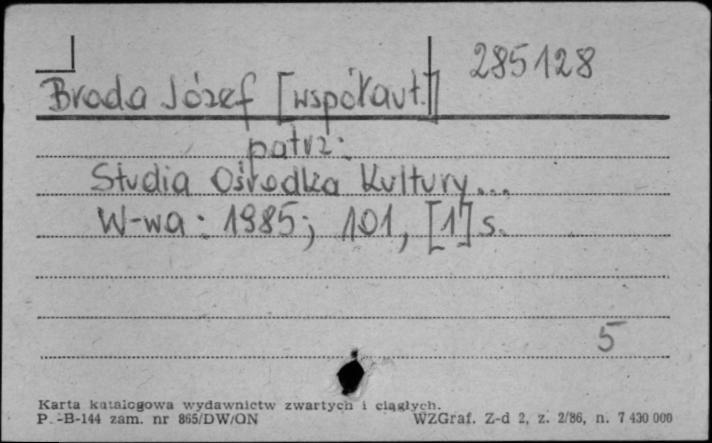 285128
Broda Józef [współaut.]
patrz:
Studia Ośrodka Kultury...
W-wa: 1985; 101, [1] s.
5
Karta katalogowa wydawnictw zwartych i ciągłych.
P.-B-144 zam. nr 865/DW/ON WZGraf. Z-d 2, z. 2/86, n. 7 430 000